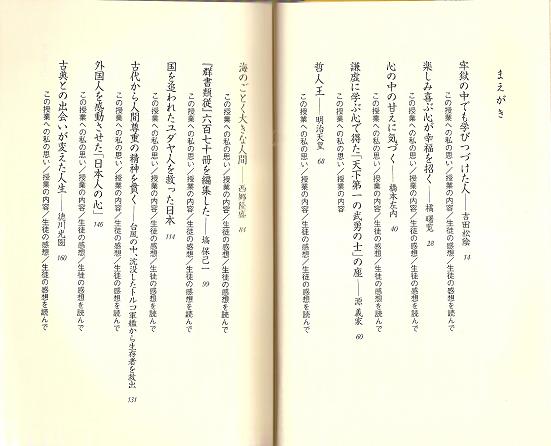 まえがき
牢獄の中でも学びつづけた人——吉田松陰 14
この授業への私の思い／授業の内容／生徒の感想／生徒の感想を読んで
楽しみ喜ぶ心が幸福を招く——橘 曙覧 28
この授業への私の思い／授業の内容／生徒の感想／生徒の感想を読んで
心の中の甘えに気づく——橋本左内 40
この授業への私の思い／授業の内容／生徒の感想／生徒の感想を読んで
謙虚に学ぶ心で得た「天下第一の武勇の士」の座——源 義家 60
この授業への私の思い／授業の内容
哲人王——明治天皇 68
この授業への私の思い／授業の内容／生徒の感想／生徒の感想を読んで
海のごとく大きな人間——西郷隆盛 84
この授業への私の思い／授業の内容／生徒の感想／生徒の感想を読んで
『群書類従』六百七十冊を編集した——塙 保己一 99
この授業への私の思い／授業の内容／生徒の感想／生徒の感想を読んで
国を追われたユダヤ人を救った日本 114
この授業への私の思い／授業の内容／生徒の感想／生徒の感想を読んで
古代から人間尊重の精神を貫く——台風の中、沈没したトルコ軍艦から生存者を救出 131
この授業への私の思い／授業の内容／生徒の感想／生徒の感想を読んで
外国人を感動させた「日本人の心」 146
この授業への私の思い／授業の内容／生徒の感想／生徒の感想を読んで
古典との出会いが変えた人生——徳川光圀 160
この授業への私の思い／授業の内容／生徒の感想／生徒の感想を読んで